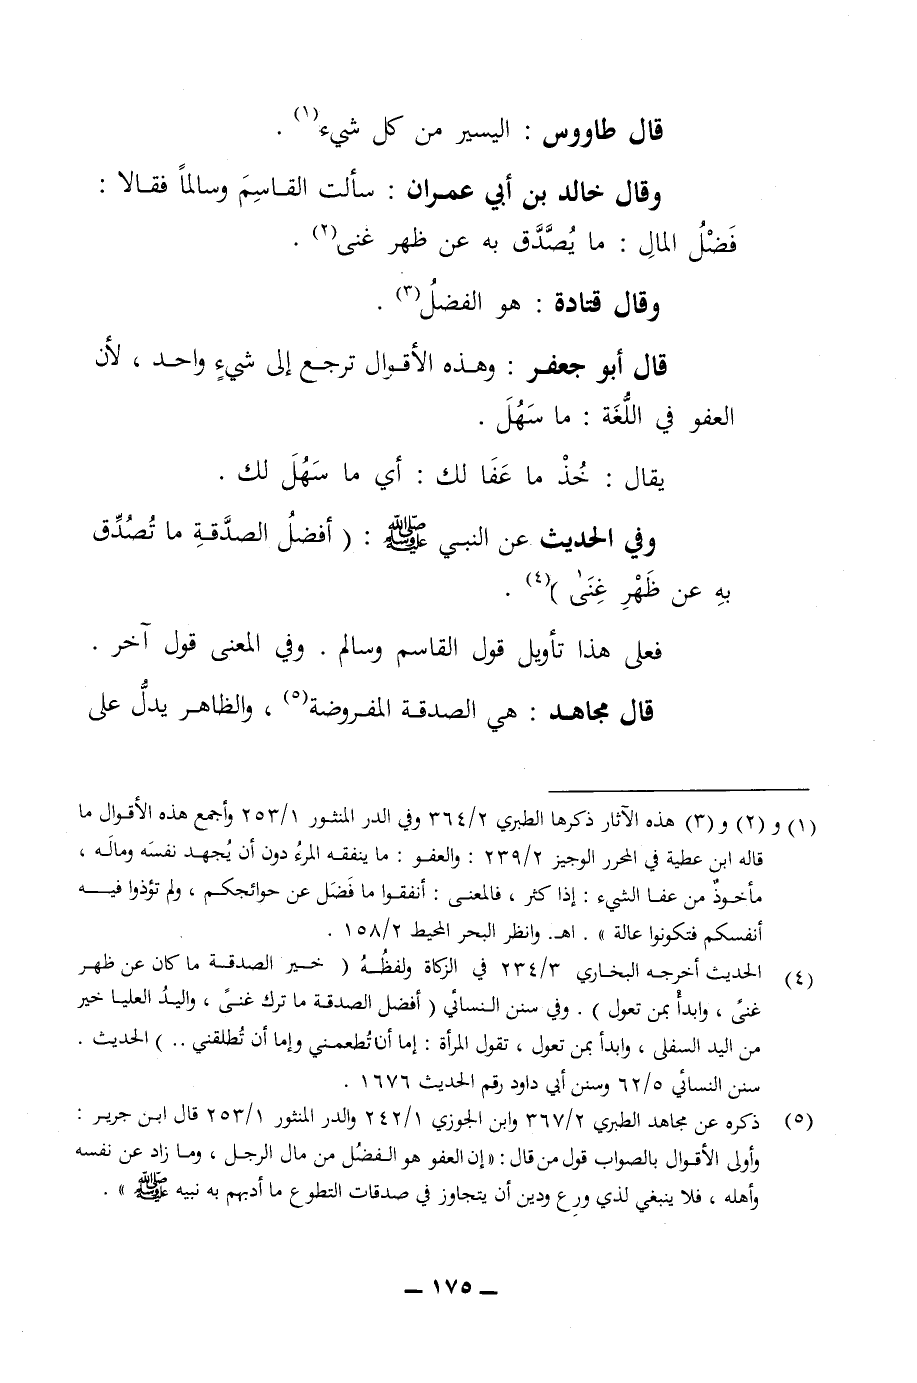 قال طاووس : اليسير من كل شيء(١) .
وقال خالد بن أبي عمران : سألت القاسِمَ وسالماً فقالا :
فَضْلُ المالِ : ما يُصَّدَّق به عن ظهر غنى(٢) .
وقال قتادة : هو الفضلُ(٣) .
قال أبو جعفر : وهذه الأقوال ترجع إلى شيءٍ واحد ، لأن
العفو في اللُّغَة : ما سَهُلَ .
يقال : خُذْ ما عَفَا لك : أي ما سَهُلَ لك .
وفي الحديث عن النبي ﷺ : ( أفضلُ الصدَّقةِ ما تُصُدِّق
بهِ عن ظَهْرِ غِنَىٰ )(٤) .
فعلى هذا تأويل قول القاسم وسالم . وفي المعنى قول آخر .
قال مجاهد : هي الصدقة المفروضة(٥) ، والظاهر يدلُّ على
(١) و (٢) و (٣) هذه الآثار ذكرها الطبري ٣٦٤/٢ وفي الدر المنثور ٢٥٣/١ وأجمع هذه الأقوال ما
قاله ابن عطية في المحرر الوجيز ٢٣٩/٢ : والعفو : ما ينفقه المرءُ دون أن يُجهد نفسَه ومالَه ،
مأخوذٌ من عفا الشيء : إذا كثر ، فالمعنى : أنفقوا ما فَضَل عن حوائجكم ، ولم تؤذوا فيه
أنفسكم فتكونوا عالة » . اهـ. وانظر البحر المحيط ١٥٨/٢ .
(٤) الحديث أخرجه البخاري ٢٣٤/٣ في الزكاة ولفظُهُ ( خير الصدقة ما كان عن ظهر
غنىً ، وابدأْ بمن تعول ) . وفي سنن النسائي ( أفضل الصدقة ما ترك غنىً ، واليدُ العليا خير
من اليد السفلى ، وابدأ بمن تعول ، تقول المرأة : إما أن تُطعمني وإما أن تُطلقني .. ) الحديث .
سنن النسائي ٦٢/٥ وسنن أبي داود رقم الحديث ١٦٧٦ .
(٥) ذكره عن مجاهد الطبري ٣٦٧/٢ وابن الجوزي ٢٤٢/١ والدر المنثور ٢٥٣/١ قال ابن جرير :
وأولى الأقوال بالصواب قول من قال : «إن العفو هو الفضل من مال الرجل ، وما زاد عن نفسه
وأهله ، فلا ينبغي لذي ورع ودين أن يتجاوز في صدقات التطوع ما أدبهم به نبيه ﷺ » .
ـ ١٧٥ ـ